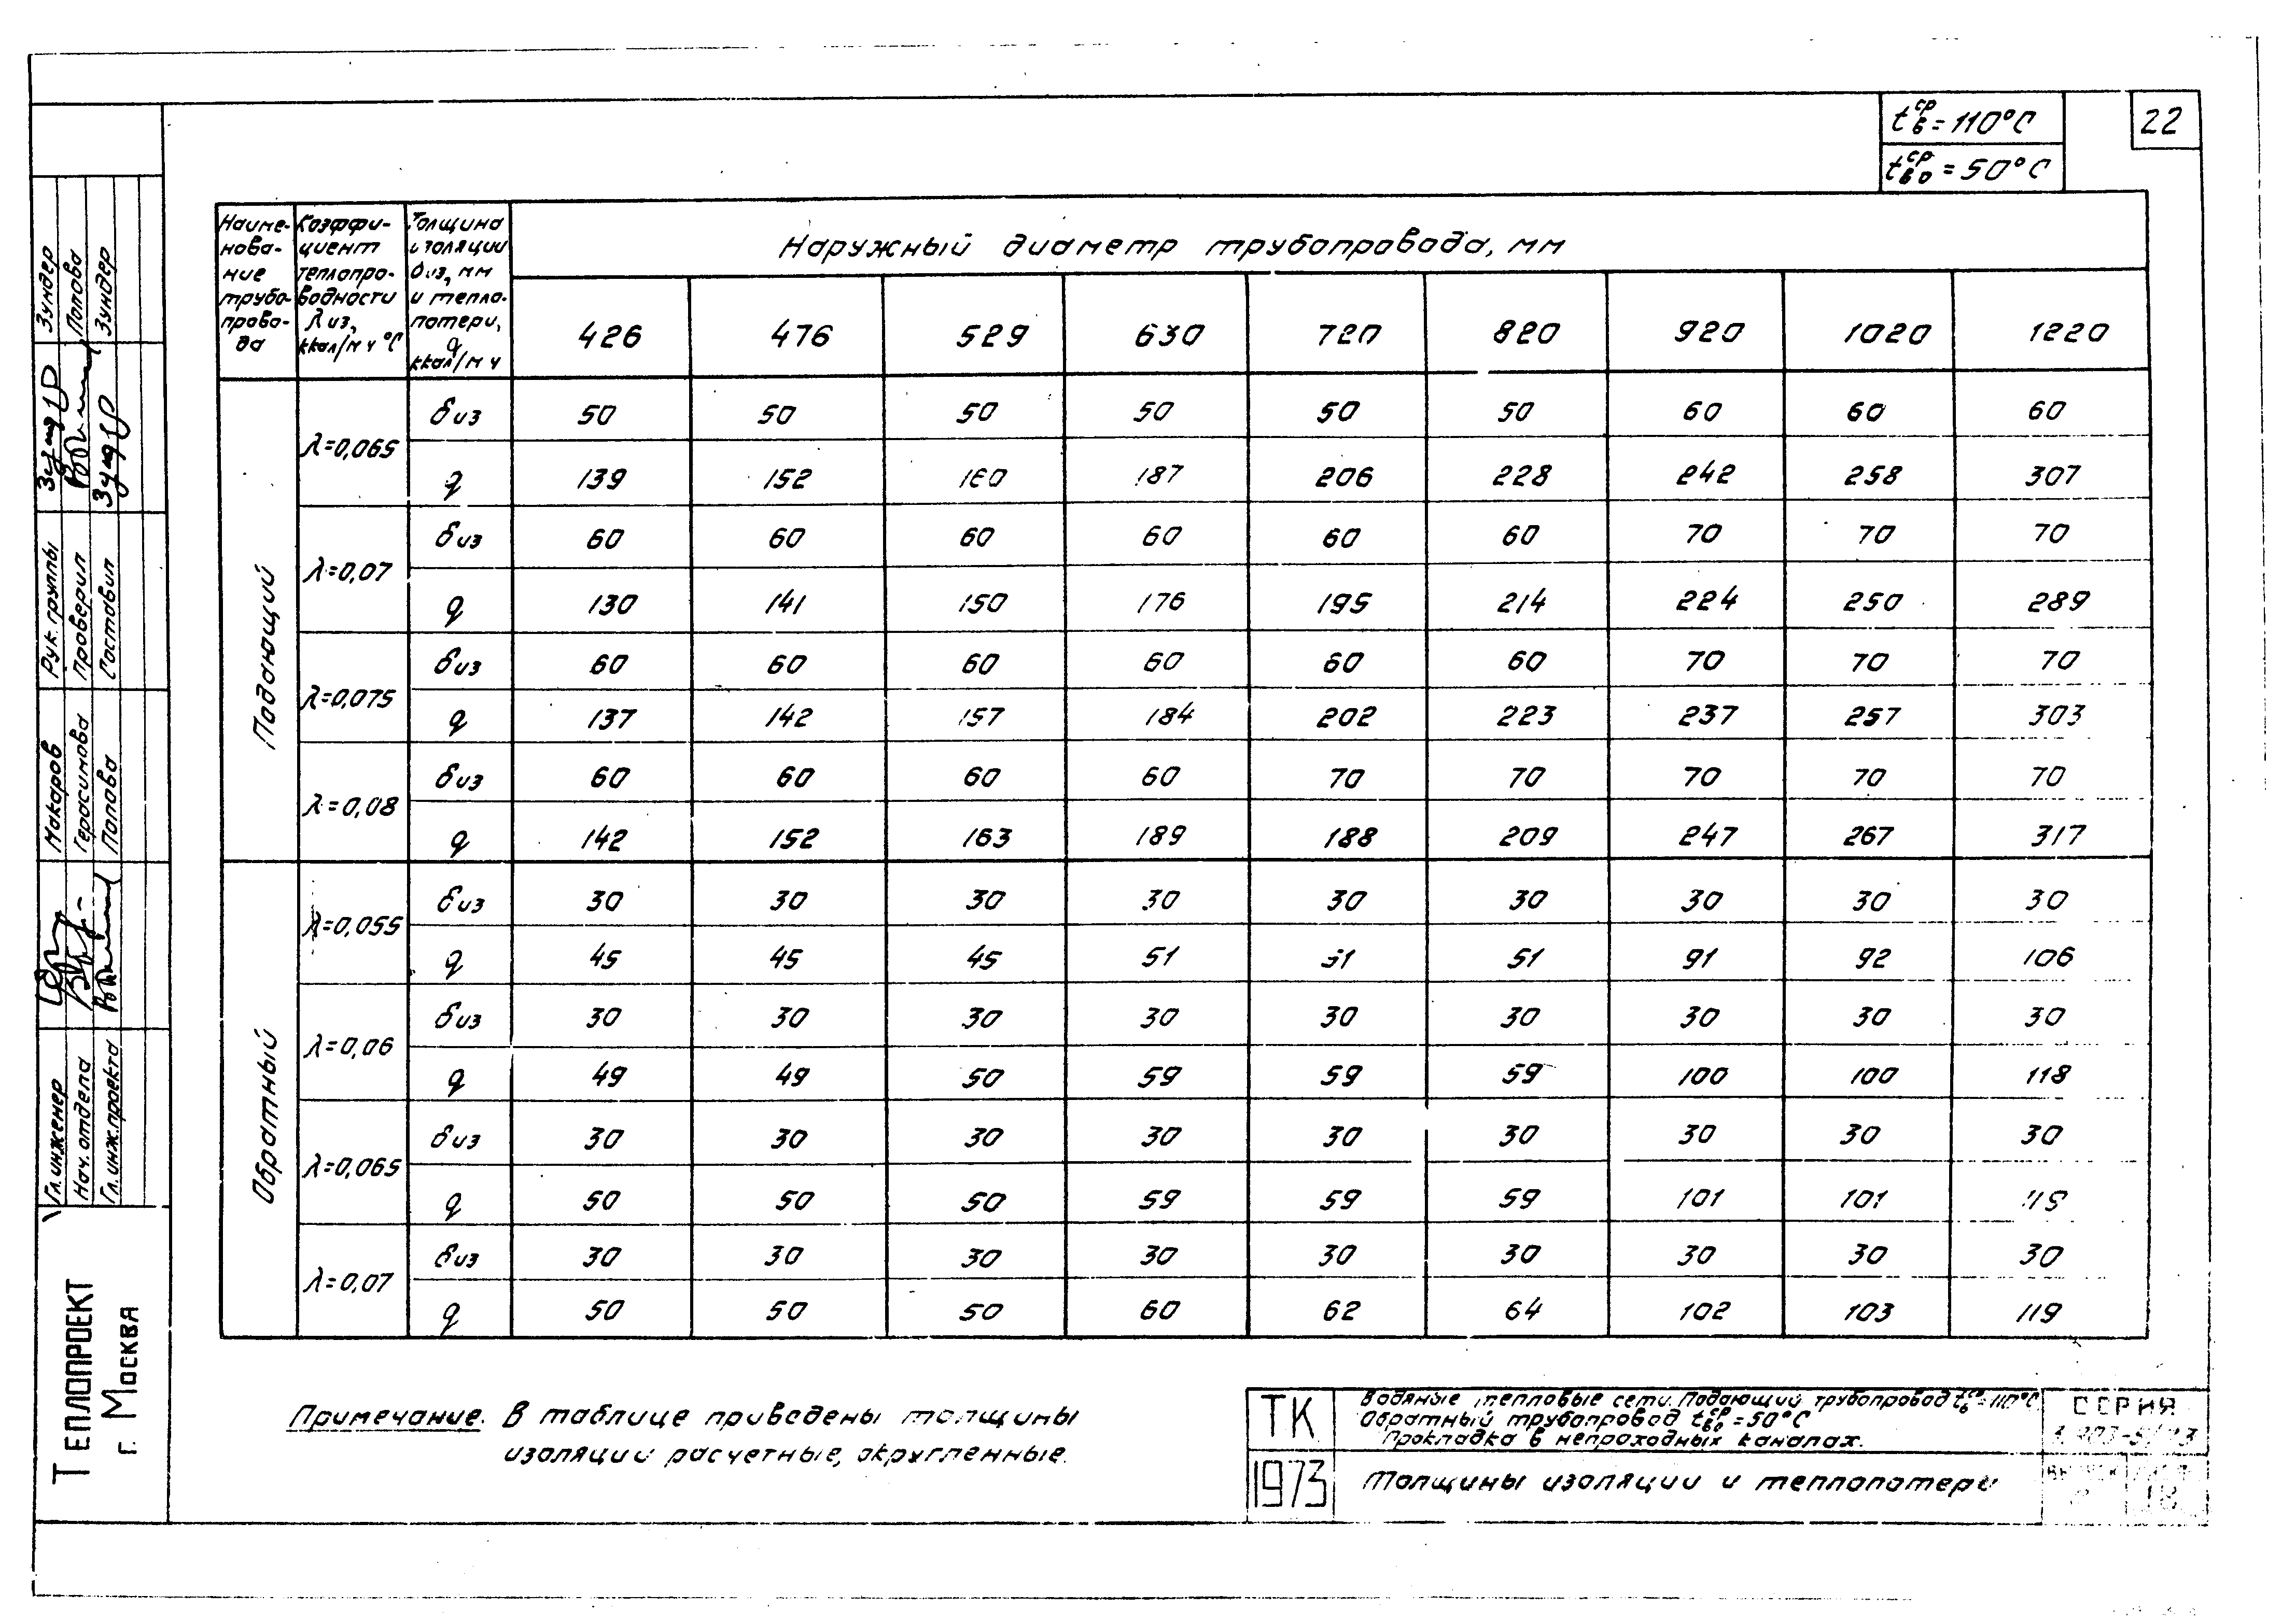 tᵦᶜᵖ = 110°C
22
tᵦₒᶜᵖ = 50°C
Наиме-нова-ние трубо-прово-да | Коэффи-циент теплопро-водности λиз, ккал/м ч °C | Толщина изоляции δиз, мм и тепло-потери, q ккал/м ч | Наружный диаметр трубопровода, мм
426 | 476 | 529 | 630 | 720 | 820 | 920 | 1020 | 1220
Подающий
λ=0,065 | δиз | 50 | 50 | 50 | 50 | 50 | 50 | 60 | 60 | 60
q | 139 | 152 | 160 | 187 | 206 | 228 | 242 | 258 | 307
λ=0,07 | δиз | 60 | 60 | 60 | 60 | 60 | 60 | 70 | 70 | 70
q | 130 | 141 | 150 | 176 | 195 | 214 | 224 | 250 | 289
λ=0,075 | δиз | 60 | 60 | 60 | 60 | 60 | 60 | 70 | 70 | 70
q | 137 | 142 | 157 | 184 | 202 | 223 | 237 | 257 | 303
λ=0,08 | δиз | 60 | 60 | 60 | 60 | 70 | 70 | 70 | 70 | 70
q | 142 | 152 | 163 | 189 | 188 | 209 | 247 | 267 | 317
Обратный
λ=0,055 | δиз | 30 | 30 | 30 | 30 | 30 | 30 | 30 | 30 | 30
q | 45 | 45 | 45 | 51 | 51 | 51 | 91 | 92 | 106
λ=0,06 | δиз | 30 | 30 | 30 | 30 | 30 | 30 | 30 | 30 | 30
q | 49 | 49 | 50 | 59 | 59 | 59 | 100 | 100 | 118
λ=0,065 | δиз | 30 | 30 | 30 | 30 | 30 | 30 | 30 | 30 | 30
q | 50 | 50 | 50 | 59 | 59 | 59 | 101 | 101
λ=0,07 | δиз | 30 | 30 | 30 | 30 | 30 | 30 | 30 | 30 | 30
q | 50 | 50 | 50 | 60 | 62 | 64 | 102 | 103 | 119
Примечание. В таблице приведены толщины
изоляции расчетные, округленные.
ТК
Водяные тепловые сети. Подающий трубопровод tᵦᶜᵖ=110°C
Обратный трубопровод tᵦₒᶜᵖ=50°C
Прокладка в непроходных каналах.
СЕРИЯ
1973
Толщины изоляции и теплопотери
18
Теплопроект
г. Москва
Гл. инженер Макаров
Нач. отдела Герасимова
Гл. инж. проекта Попова
Рук. группы Зундер
Проверил Попова
Составил Зундер